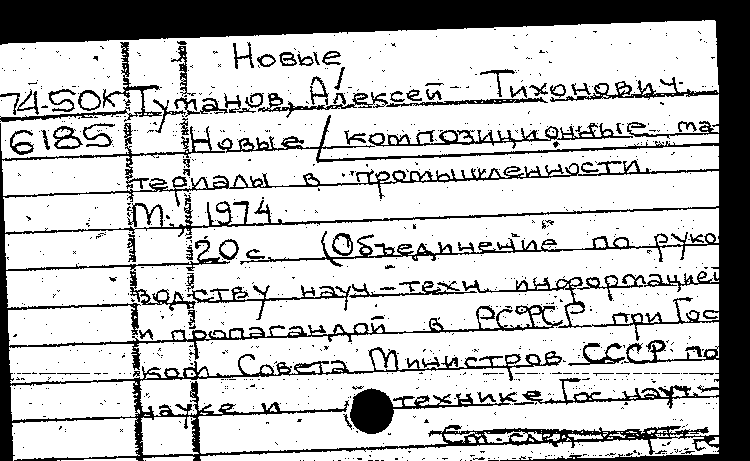 Новые
74-50к Туманов, Алексей Тихонович.
6185 Новые / композиционные ма-
териалы в промышленности.
М., 1974.
20 с. (Объединение по руко-
водству науч.-техн. информацией
и пропагандой в РСФСР при Гос.
ком. Совета Министров СССР по
науке и технике. Гос. науч.-
См. след. карт.